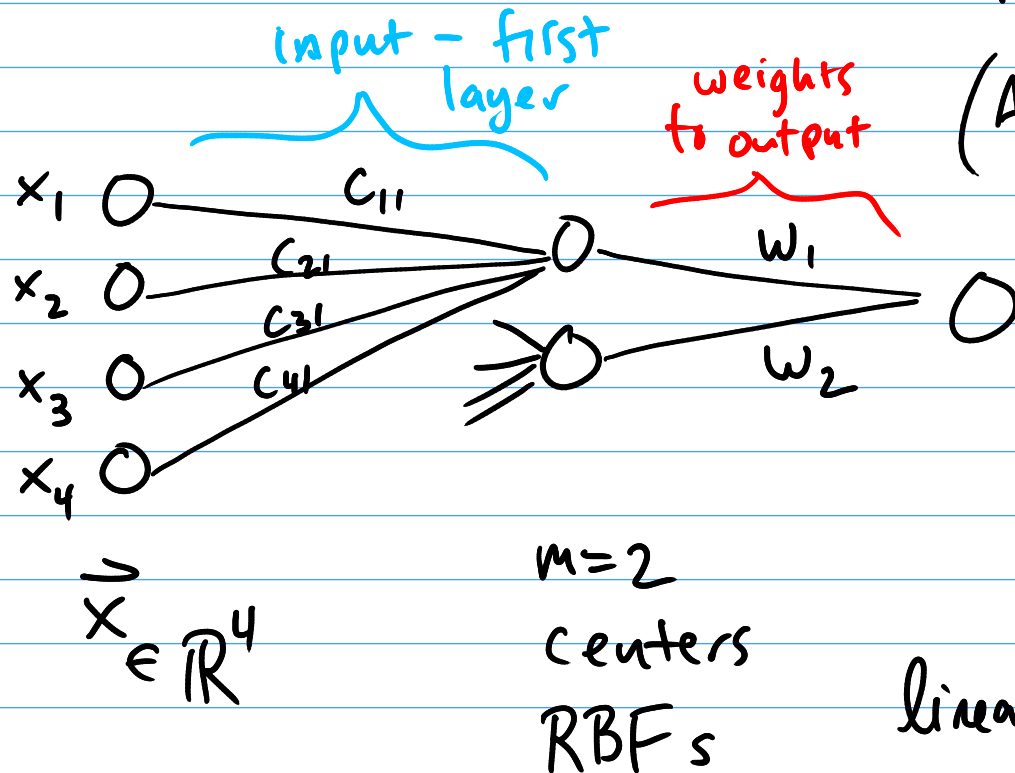 input - first
layer
weights
to output
(
x₁
C₁₁
x₂
C₂₁
W₁
C₃₁
x₃
C₄₁
W₂
x₄
x⃗ ∈ ℝ⁴
m=2
centers
RBFs
linea